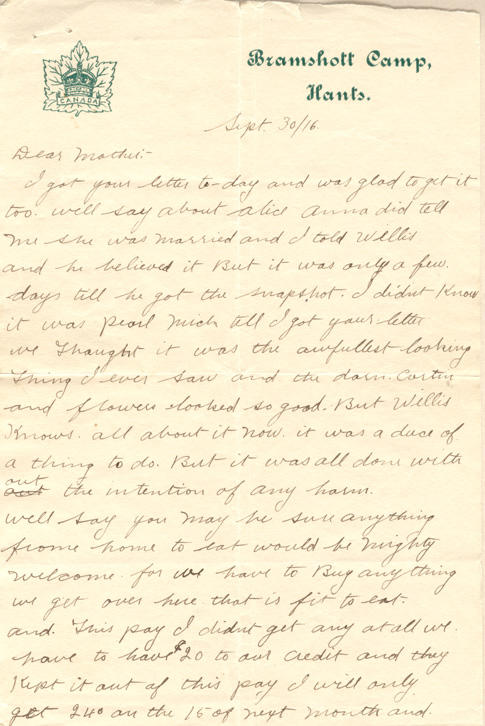 CANADA
Bramshott Camp,
Hants.
Sept. 30/16.
Dear Mother:-
I got your letter to-day and was glad to get it
too. well say about alice anna did tell
me she was married and I told Willis
and he believed it But it was only a few.
days till he got the snapshot. I didnt Know
it was Pearl Mick till I got your letter
we thought it was the awfullest looking
Thing I ever saw and the darn.
and flowers looked so good. But Willis
Knows. all about it now. it was a duce of
a thing to do. But it was all done with
out the intention of any harm.
well say you may be sure anything
frome home to eat would be mighty
welcome. for we have to Buy anything
we get over here that is fit to eat.
and. This pay I didnt get any at all we.
have to have $20 to our credit and they
Kept it out of this pay I will only
get 240 on the 15 of next month and.